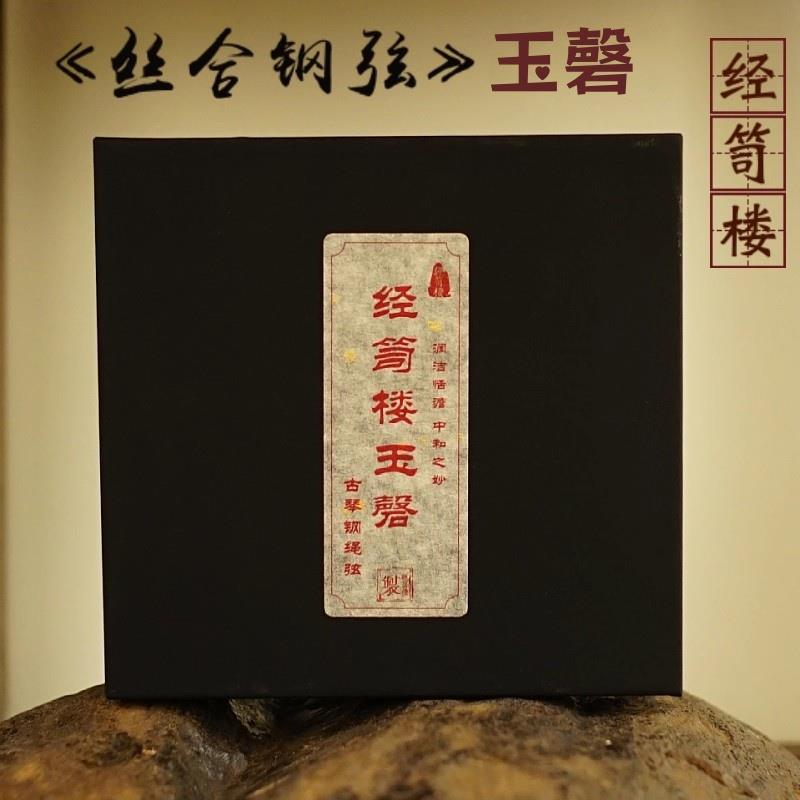 《丝合钢弦》玉磬
经笥楼
润洁恬澹 中和之妙
经笥楼玉磬
古琴钢绳弦
製